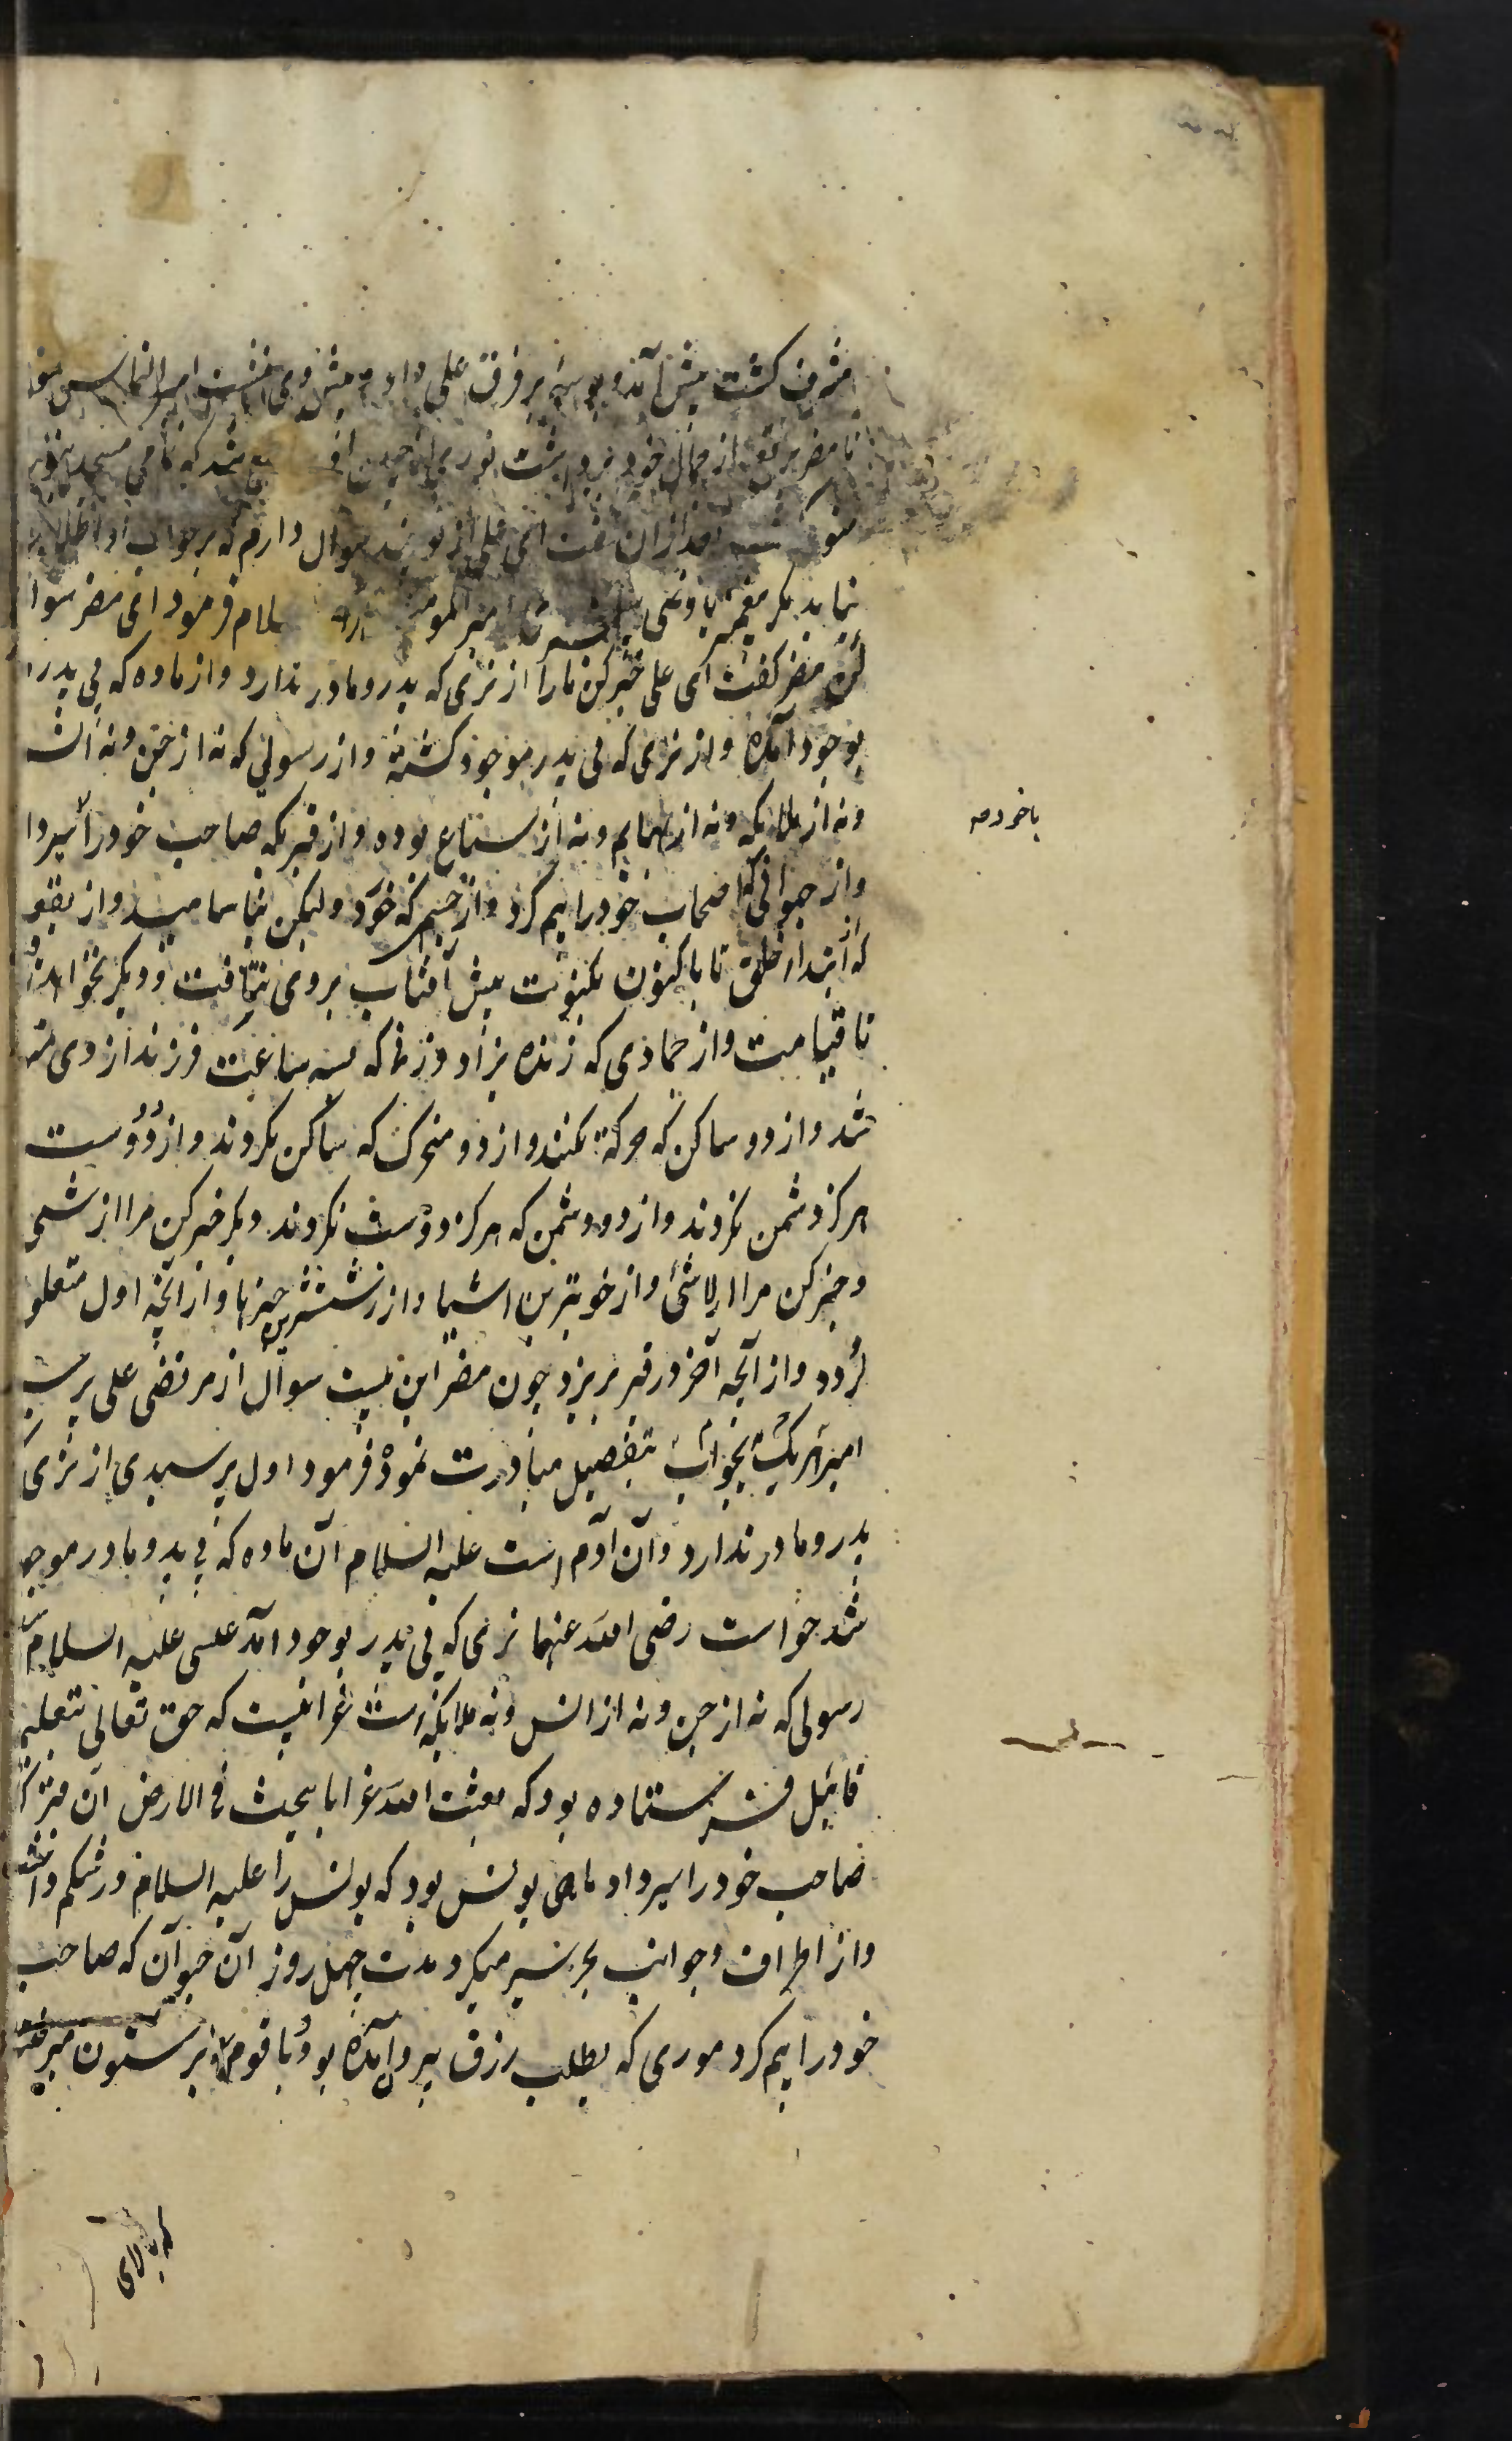 مشرف کشت پیش آمد و بوسه بر فرق علی داد و پیش وی بنشست امیر التماس
تا مضر برقع از جمال خود برداشت نوری از جبین شد که تمامی مسجد
بعد ازان گفت ای علی از تو چند سوال دارم که بر جواب او اطلاع
نیابد مکر پیغمبر یا وصی پیغمبر امیر المومنین لسلام فرمود ای مضر سوا
کن مضر کفت ای علی خبر کن مارا از نری که پدر و مادر ندارد و از ماده که بی پدر
بوجود آمده و از نری که بی پدر موجود کشته و از رسولی که نه از جن و نه انس
و نه از ملایکه و نه از بهایم و نه از سباع بوده و از قبریکه صاحب خود را سیر دا
و از حیوانی که اصحاب خود را بیم کرد و از جسم که خورد ولیکن نیاشامید و از بقعه
که از ابتدا خلق تا باکنون یکنوبت بیش آفتاب بر وی نتافت و دیکر نخواهد
تا قیامت و از جمادی که زنده بزاد و زنی که بسه ساعت فرزند از وی متو
شد و از دو ساکن که حرکة نکنند و از دو متحرک که ساکن نکردند و از دو دوست
هرکز دشمن نکردند و از دو دشمن که هرکز دوست نکردند دیکر خبر کن مرا از شی
و خبر کن مرا از لاشی و از خوبترین اشیا و از زشتترین چیزها و از آنچه اول متعلق
کردد و از آنچه آخر در قبر بریزد چون مضر این بیست سوال از مرتضی علی پرسید
امیر هر یک بجواب بتفصیل مبادرت نمود فرمود اول پرسیدی از نری که
پدر و مادر ندارد و آن آدم است علیه السلام آن ماده که بی پدر و مادر موجو
شد حواست رضی الله عنهما نری که بی پدر بوجود آمد عیسی علیه السلام
رسولی که نه از جن و نه از انس و نه ملایکه است غرابیست که حق تعالی بتعلیم
قابیل فرستاده بود که فبعث الله غرابا یبحث فی الارض آن قبر که
صاحب خود را سیر داد ماهی یونس بود که یونس را علیه السلام در شکم داشت
و از اطراف و جوانب بحر سیر میکرد مدت چهل روز آن حیوان که صاحب
خود را بیم کرد موری که بطلب رزق بیرون آمده بود با قوم بر ستون
باخردمه
که بالای